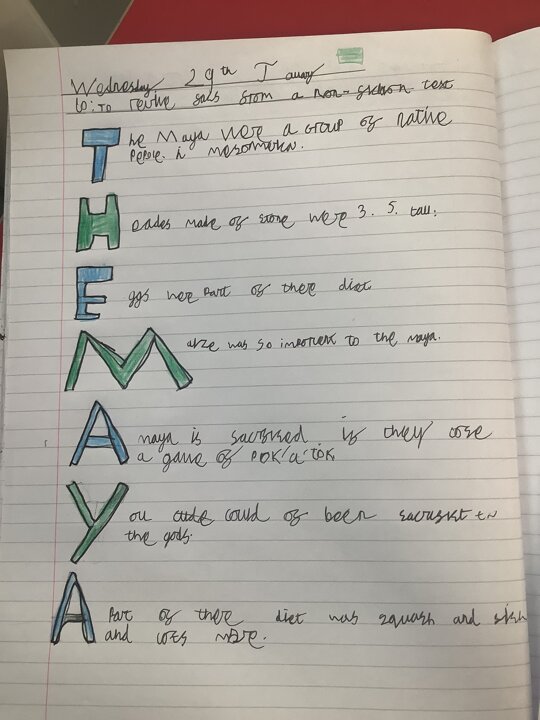 Wednesday 29th Jauary
LO: TO revine from a non-fiction text
The Maya were a group of native
People in mesomerica.
Heades made of stone were 3.5 tall.
Eggs were part of there diet
Maize was so important to the maya.
A maya is sacrificed if they lose
a game of POK'a'TOK
You could of been sacrifist to
the gods.
A Part of there diet was squash and fish
and lots more.